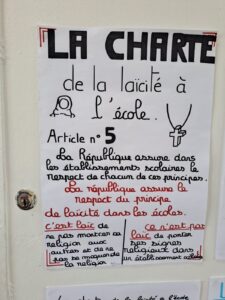 LA CHARTE
de la laïcité à
l'école.
Article n° 5
La République assure dans
les établissements scolaires le
respect de chacun de ces principes.
La république assure le
respect du principe
de laïcité dans les écoles.
c'est laïc de
ne pas montrer sa
religion aux
autres et de ne
pas se moquer de
la religion
ce n'est pas
laïc de porter
des signes
religieux dans
un établissement